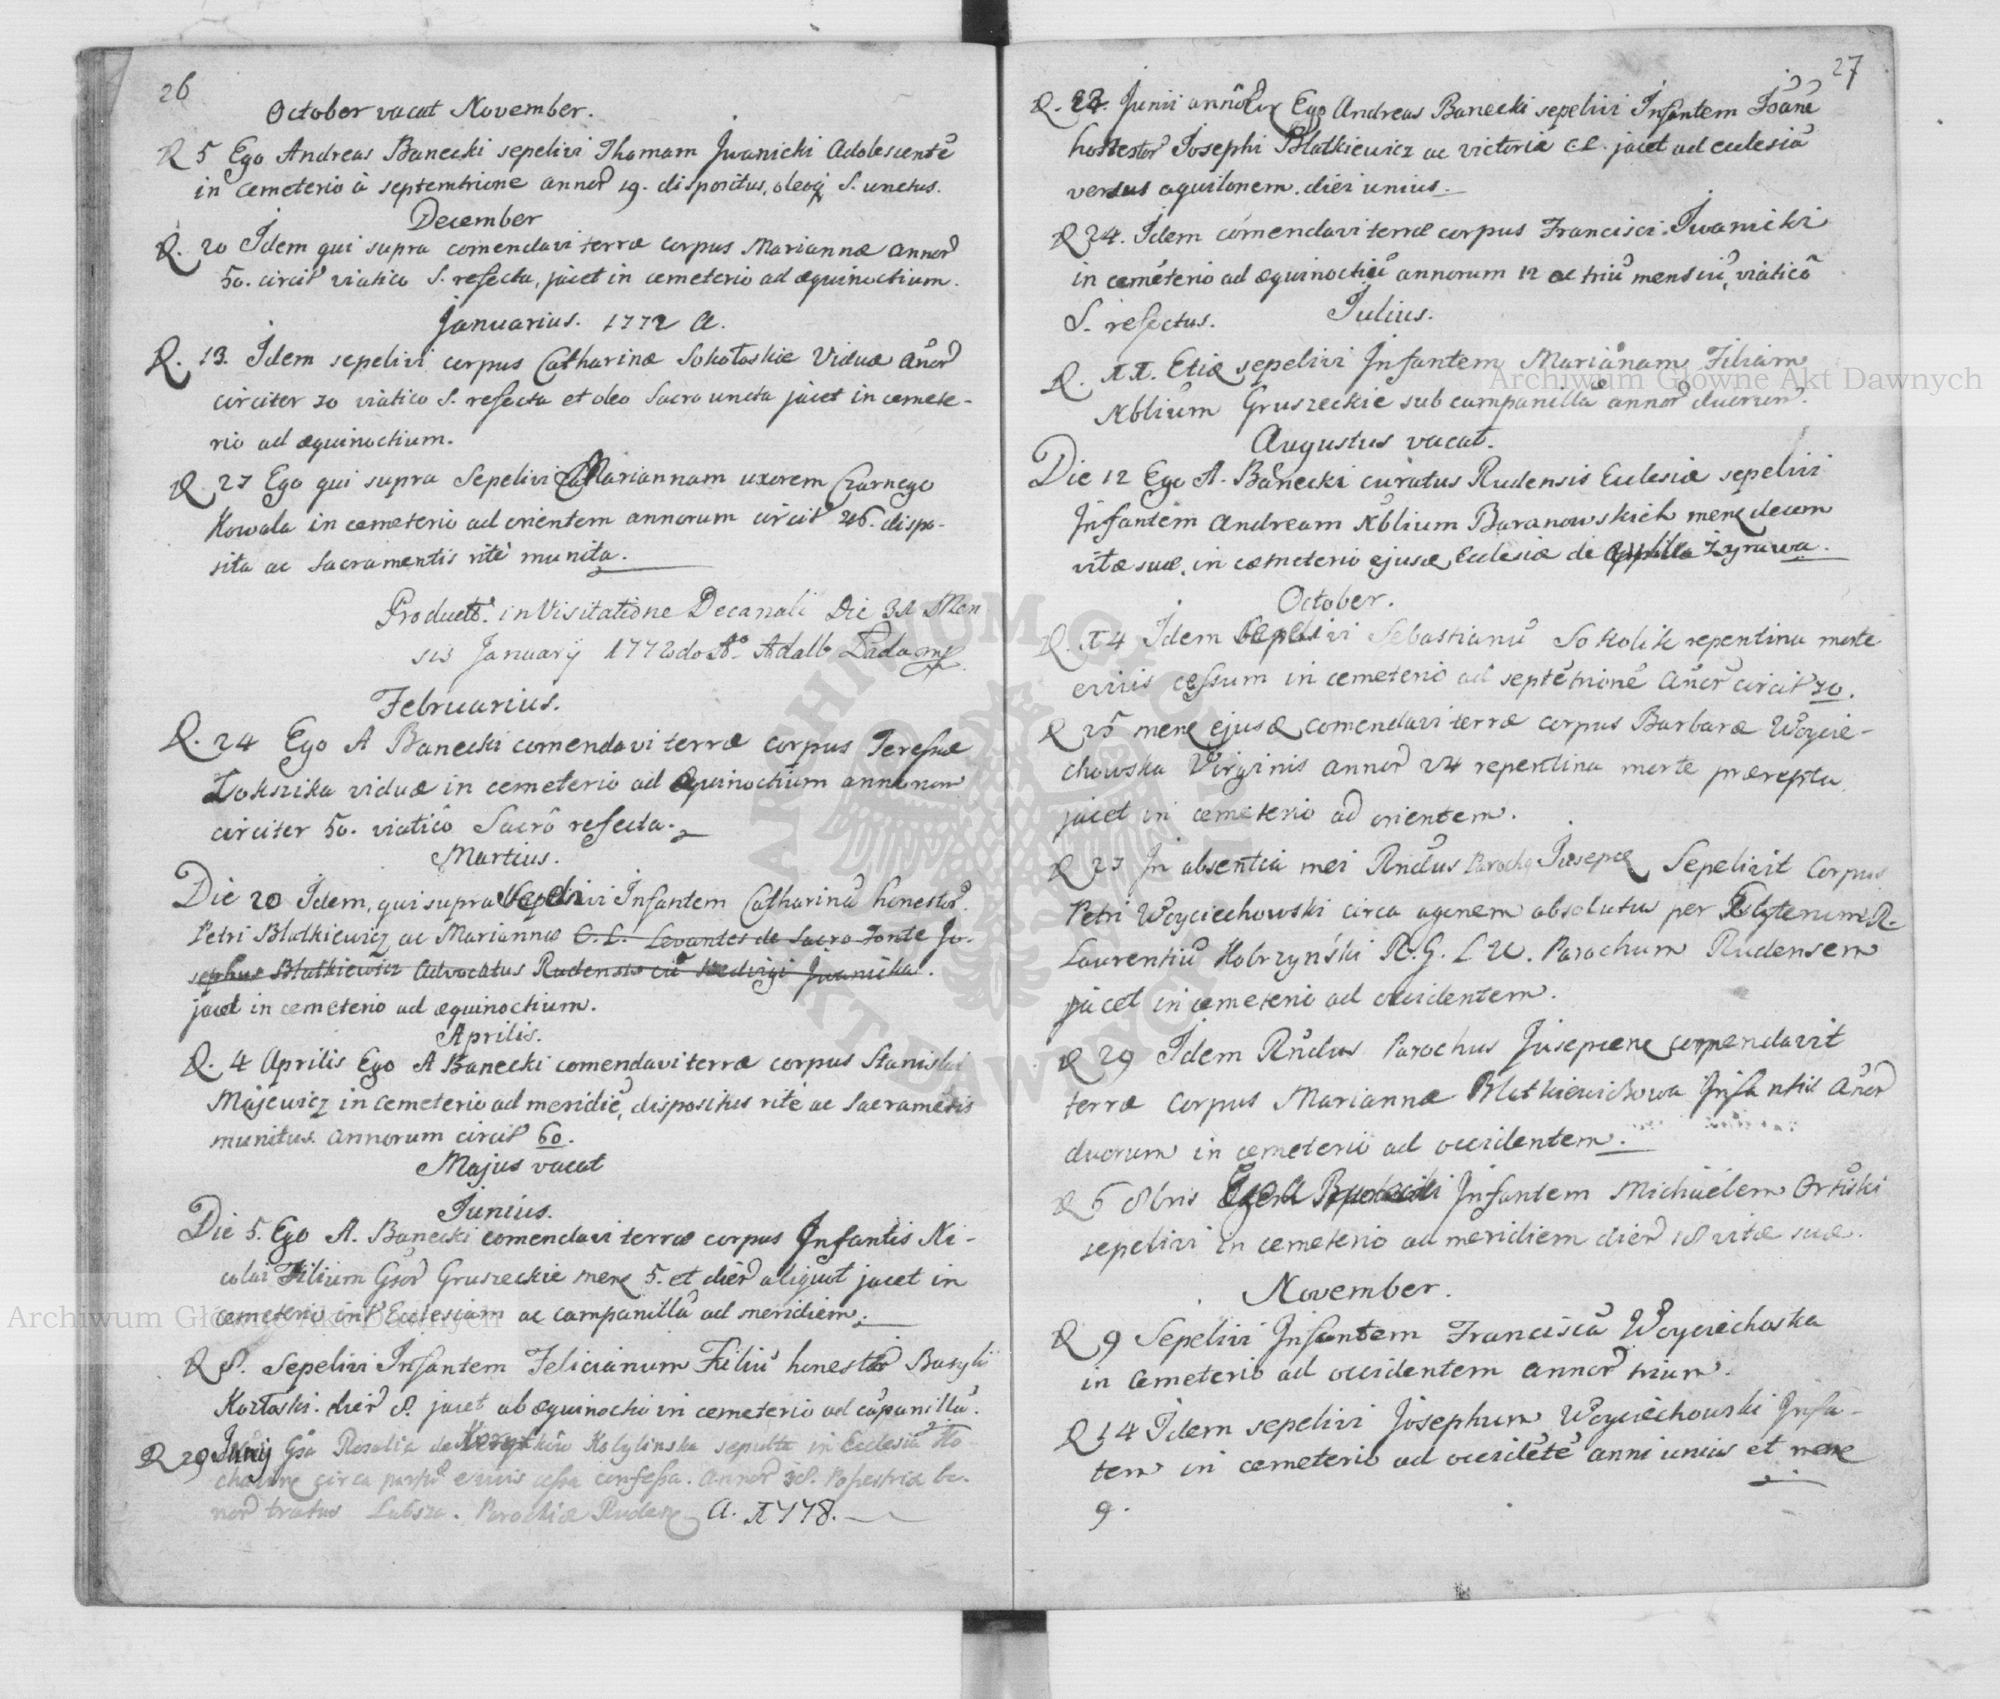 26
October vacat November.
D 5 Ego Andreas Banecki sepelivi Thomam Jwanicki Adolescentē
in Cemeterio à septemtrione annor 19. dispositus, oleoq S. unctus.
December
D. 20 Idem qui supra comendavi terræ corpus Mariannæ annor
50. circit viatico S. refecta, jacet in cemeterio ad æquinoctium.
Januarius. 1772 A.
D. 13. Idem sepelivi corpus Catharinæ Sokołoskie Viduæ añor
circiter 70 viatico S. refecta et oleo Sacro uncta jacet in cemete-
rio ad æquinoctium.
D 27 Ego qui supra Sepelivi Mariannam uxorem Czarnego
Kowala in cemeterio ad orientem annorum circit 46. dispo-
sita ac Sacramentis ritè munita.
Product. in Visitatione Decanali Die 31 Men
sis Januarij 1772do Ao. Adalb Lada mp
Februarius.
D. 24 Ego A Banecki comendavi terræ corpus Teressæ
Lokszika viduæ in cemeterio ad Æquinoctium annorum
circiter 50. viaticô Sacrô refecta.
Martius.
Die 20 Idem, qui supra Sepelivi Infantem Catharinā honestor
Petri Blatkiewicz ac Mariannæ C. L. Levantes de Sacro Fonte Jo-
sephus Blatkiewicz Advocatus Rudensis cū Hedvigi Jwanicka.
jacet in cemeterio ad æquinoctium.
Aprilis.
D. 4 Aprilis Ego A Banecki comendavi terræ corpus Stanislai
Majewicz in cemeterio ad meridiē, dispositus rite ac Sacramētis
munitus. annorum circit 60.
Majus vacat
Junius.
Die 5. Ego A. Banecki comendavi terræ corpus Infantis Ni-
colai Filium Gsor Gruszeckie mens 5. et dier aliquot jacet in
cemeterio int Ecclesiam ac campanillā ad meridiem.
D 8. Sepelivi Infantem Felicianum Filiū honestor Basylii
Kozłoski. dier 8. jacet ab æquinoctio in cemeterio ad cāpanillā.
D 29 Junij Gsa Rosalia de Kobylinska sepulta in Ecclesiā Ko
circa partū e vivis cessa confessa. Annor 38.
nor tractus Lubsza. Parochiæ Rudens A. 1778.
27
D. 22. Junii annor Ego Andreas Banecki sepelivi Infantem Joānē
honestor Josephi Blatkiewicz ac victoriæ C.L. jacet ad ecclesiā
versus aquilonem. diei unius.
D 24. Idem comendavi terræ corpus Francisci Jwanicki
in cemeterio ad æquinoctiū annorum 12 ac triū mensiū, viaticô
S. refectus.
Julius.
D. 11. Etiā sepelivi Infantem Mariānam Filiam
Nblium Gruszeckie sub campanilla annor duorum.
Augustus vacat.
Die 12 Ego A. Banecki curatus Rudensis Ecclesiæ sepelivi
Infantem Andream Nblium Baranowskich mens decem
vitæ suæ, in cæmeterio ejusd Ecclesiæ de Zyrawa.
October.
D. 14 Idem Sepelivi Sebastianū Sokolik repentina morte
e vivis cessum in cemeterio ad septētrionē añor circit 70.
D 25 mens ejusd comendavi terræ corpus Barbaræ Woycie-
chowska Virginis annor 24 repentina morte prærepta.
jacet in cemeterio ad orientem.
D 27 In absentia mei Rndus Parochq Jusepcz Sepelivit Corpus
Petri Woyciechowski circa agonem absolutus per Psbyterum R-
Laurentiū Kobrzyński R. G. L U. Parochum Rudensem
jacet in cemeterio ad occidentem.
D 29 Idem Rndus Parochus Jusepcens comendavit
terræ corpus Mariannæ Blatkiewiczowa Infantis añor
duorum in cemeterio ad occidentem.
D 6 8bris Ego A Banecki Infantem Michaëlem
sepelivi in cemeterio ad meridiem dier 18 vitæ suæ.
November.
D 9 Sepelivi Infantem Franciscā Woyciechoska
in cemeterio ad occidentem annor trium.
D 14 Idem sepelivi Josephum Woyciechowski Infa-
tem in cemeterio ad occidētē anni unius et mens
9.
Archiwum Główne Akt Dawnych
Archiwum Główne Akt Dawnych
ARCHIWUM GŁÓWNE
AKT DAWNYCH